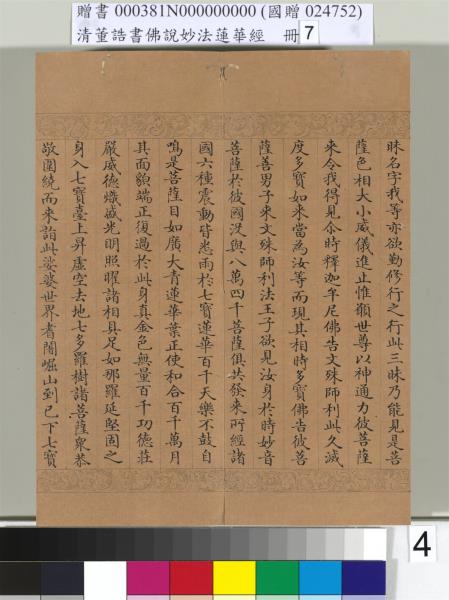 贈書 000381N000000000 (國贈 024752)
清董誥書佛說妙法蓮華經 冊 7
昧名字我等亦欲勤修行之行此三昧乃能見是菩
薩色相大小威儀進止惟願世尊以神通力彼菩薩
來令我得見尒時釋迦牟尼佛告文殊師利此久滅
度多寶如來當為汝等而現其相時多寶佛告彼菩
薩善男子來文殊師利法王子欲見汝身於時妙音
菩薩於彼國沒與八萬四千菩薩俱共發來所經諸
國六種震動皆悉雨於七寶蓮華百千天樂不鼓自
鳴是菩薩目如廣大青蓮華葉正使和合百千萬月
其面貌端正復過於此身真金色無量百千功德莊
嚴威德熾盛光明照曜諸相具足如那羅延堅固之
身入七寶臺上昇虛空去地七多羅樹諸菩薩眾恭
敬圍繞而來詣此娑婆世界耆闍崛山到已下七寶
4